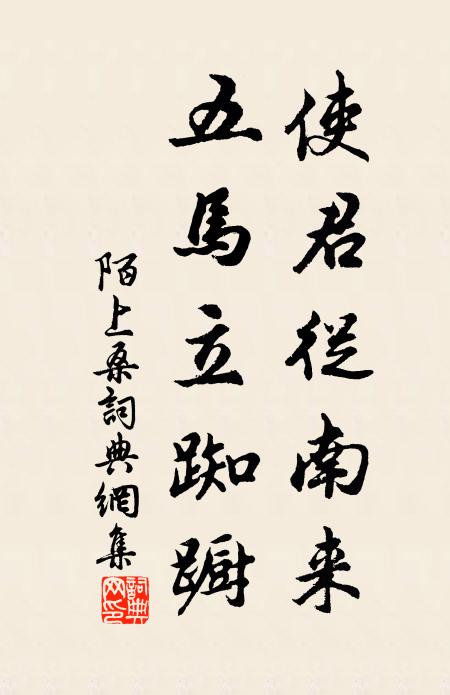 使君從南来
五馬立踟蹰
陌上桑詞典網集
詞典网印